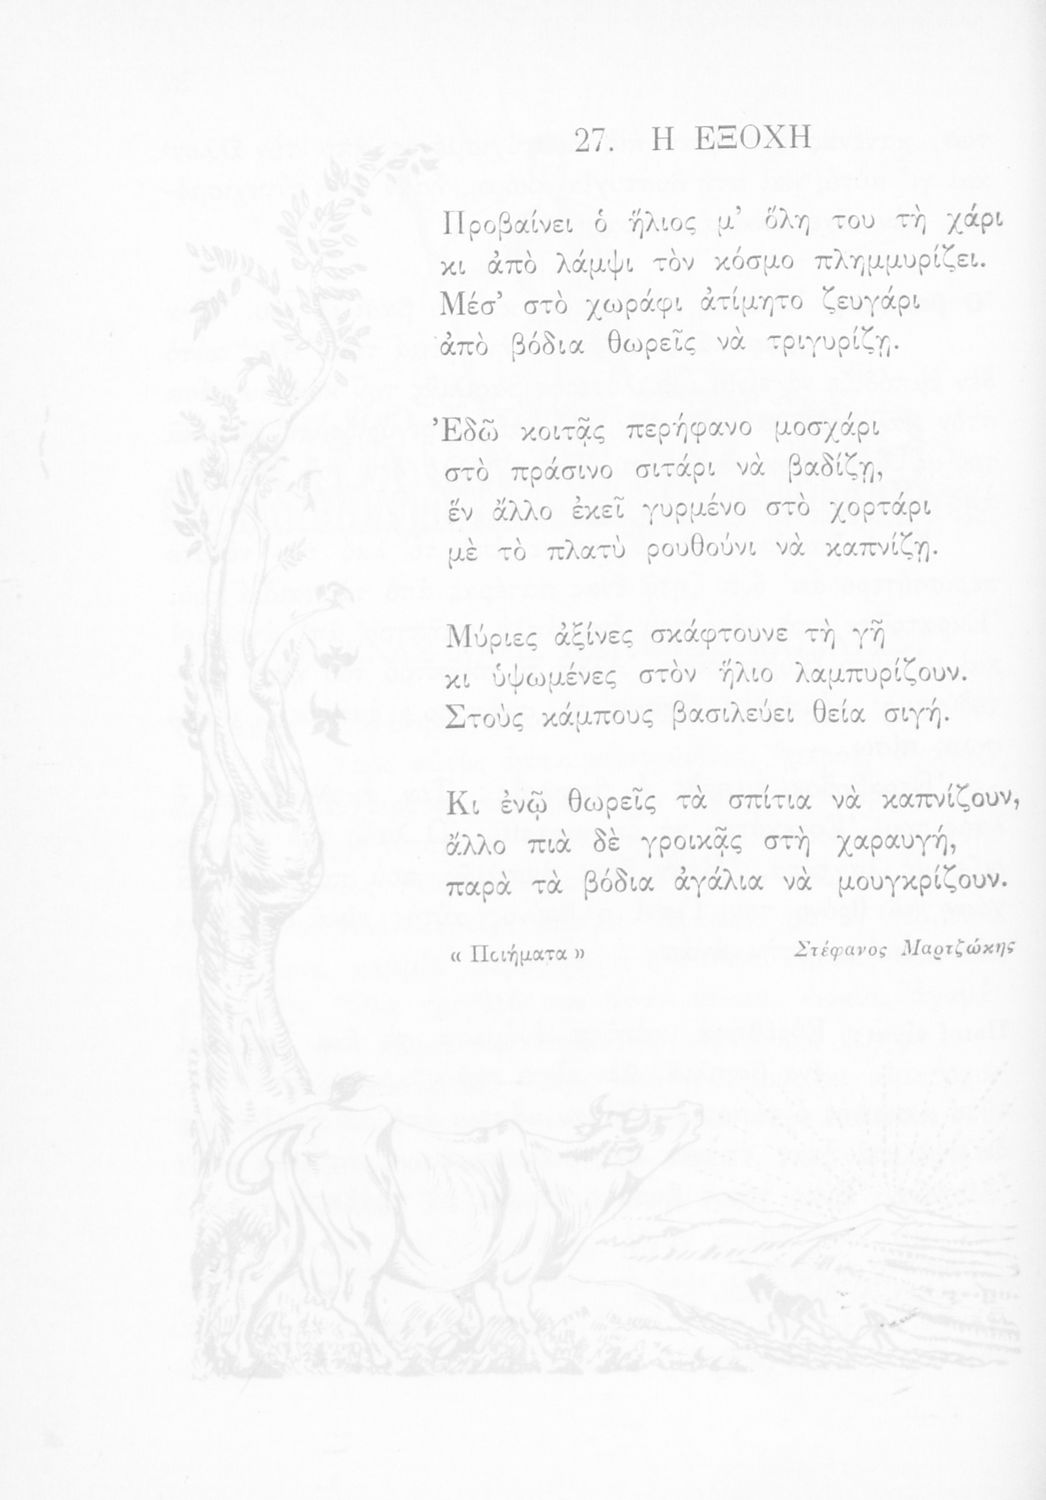 27. Η ΕΞΟΧΗ
Προβαίνει ὁ ἥλιος μ’ ὅλη του τὴ χάρι
κι ἀπὸ λάμψι τὸν κόσμο πλημμυρίζει.
Μέσ’ στὸ χωράφι ἀτίμητο ζευγάρι
ἀπὸ βόδια θωρεῖς νὰ τριγυρίζῃ.
Ἐδῶ κοιτᾷς περήφανο μοσχάρι
στὸ πράσινο σιτάρι νὰ βαδίζῃ,
ἕν ἄλλο ἐκεῖ γυρμένο στὸ χορτάρι
μὲ τὸ πλατὺ ρουθούνι νὰ καπνίζῃ.
Μύριες ἀξίνες σκάφτουνε τὴ γῆ
κι ὑψωμένες στὸν ἥλιο λαμπυρίζουν.
Στοὺς κάμπους βασιλεύει θεία σιγή.
Κι ἐνῷ θωρεῖς τὰ σπίτια νὰ καπνίζουν,
ἄλλο πιὰ δὲ γροικᾷς στὴ χαραυγή,
παρὰ τὰ βόδια ἀγάλια νὰ μουγκρίζουν.
« Ποιήματα » Στέφανος Μαρτζώκης